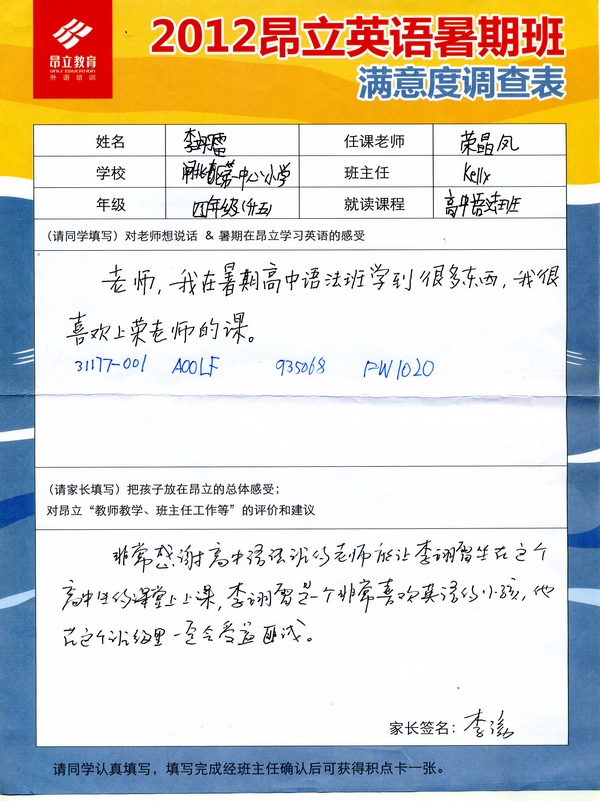 昂立教育
ONLY EDUCATION
外语培训
2012昂立英语暑期班
满意度调查表
姓名 李翊 任课老师 荣晶凤
学校 闸北 第一中心小学 班主任 Kelly
年级 四年级(升五) 就读课程 高中语法班
(请同学填写) 对老师想说话 & 暑期在昂立学习英语的感受
老师,我在暑期高中语法班学到很多东西,我很
喜欢上荣老师的课。
31177-001 A00LF 935068 PW1020
(请家长填写) 把孩子放在昂立的总体感受;
对昂立“教师教学、班主任工作等”的评价和建议
非常感谢高中语法班的老师能让李翊 坐在这个
高中生的课堂上上课,李翊 是一个非常喜欢英语的小孩,他
在这个班级里一定会受益匪浅。
家长签名: 李
请同学认真填写,填写完成经班主任确认后可获得积点卡一张。